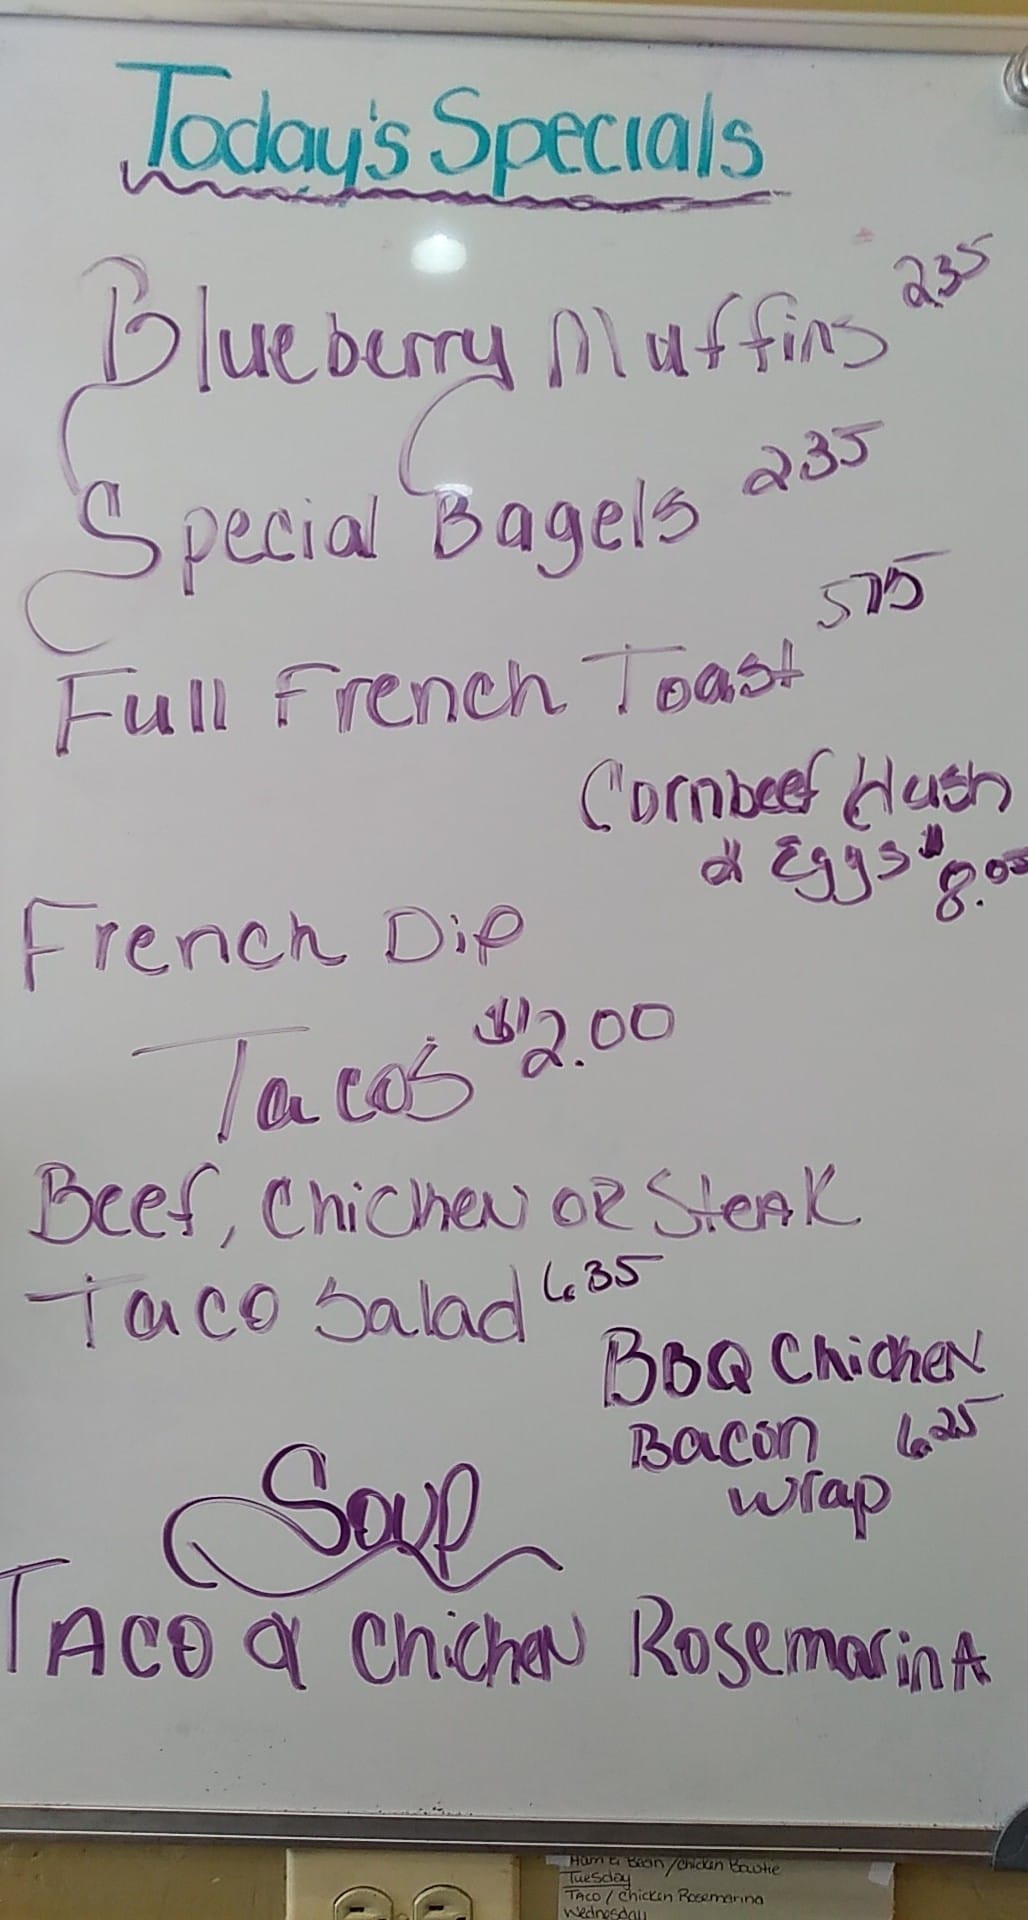 Today's Specials
Blueberry Muffins 235
Special Bagels 235
Full French Toast 575
Cornbeef Hash
& Eggs $8.00
French Dip
Tacos $2.00
Beef, Chicken OR Steak
Taco Salad 6.35
BBQ Chicken
Bacon 6.25
wrap
Soup
TACO & Chicken RosemarinA
Ham & Bean / Chicken Bowtie
Tuesday
TACO / Chicken Rosemarina
Wednesday